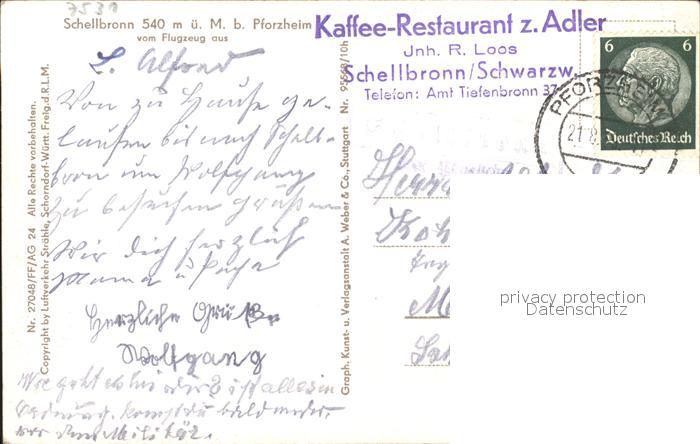 7531
Schellbronn 540 m ü. M. b. Pforzheim
vom Flugzeug aus
Kaffee-Restaurant z. Adler
Jnh. R. Loos
Schellbronn/Schwarzw.
Telefon: Amt Tiefenbronn 37
6 6
Deutsches Reich
PFORZHEIM
21.8.
L. Alfred
Von zu Hause ge-
laufen bis nach Schell-
bronn um Wolfgang
zu besuchen grüßen
Wir dich herzlich
Mama u Papa
Herzliche Grüße
Wolfgang
Wie geht es bei dir ist alles in
Ordnung. Kommst du bald wieder
vom Militär.
Herrn
Nr. 27048/FF/AG 24 Alle Rechte vorbehalten.
Copyright by Luftverkehr Strähle, Schorndorf-Württ. Freig. d. R.L.M.
Graph. Kunst- u. Verlagsanstalt A. Weber & Co., Stuttgart Nr. 95568/10h
privacy protection
Datenschutz